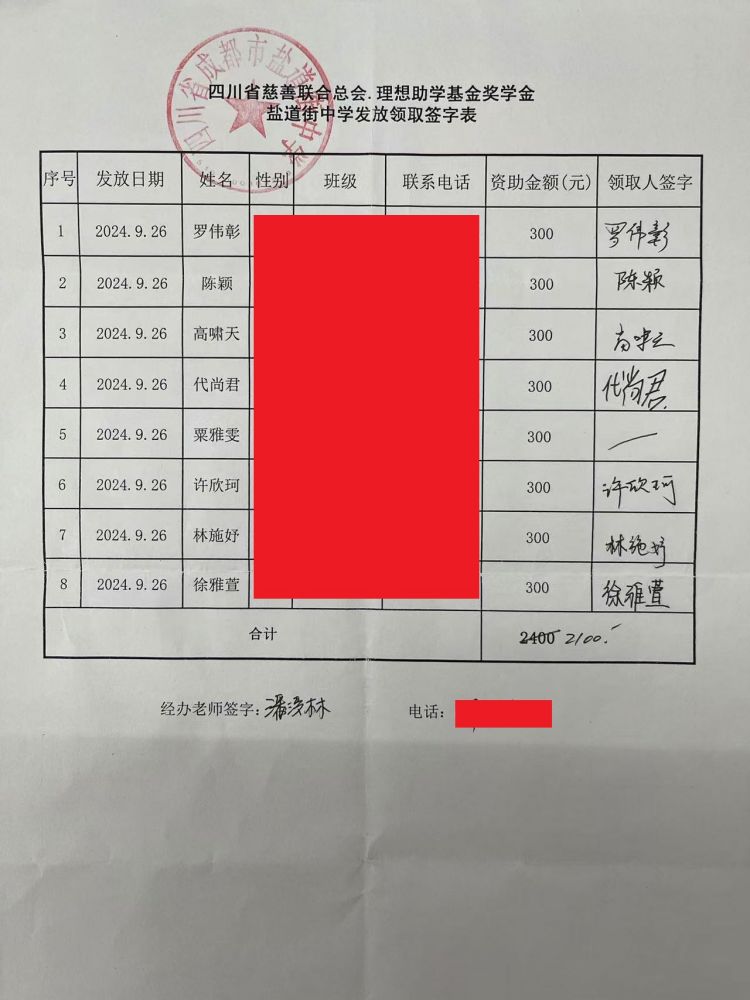 四川省成都市盐道街中学
四川省慈善联合总会.理想助学基金奖学金
盐道街中学发放领取签字表
序号 发放日期 姓名 性别 班级 联系电话 资助金额(元) 领取人签字
1 2024.9.26 罗伟彰 300 罗伟彰
2 2024.9.26 陈颖 300 陈颖
3 2024.9.26 高啸天 300 高啸天
4 2024.9.26 代尚君 300 代尚君
5 2024.9.26 粟雅雯 300 —
6 2024.9.26 许欣珂 300 许欣珂
7 2024.9.26 林施妤 300 林施妤
8 2024.9.26 徐雅萱 300 徐雅萱
合计 2400 2100.-
经办老师签字: 电话: